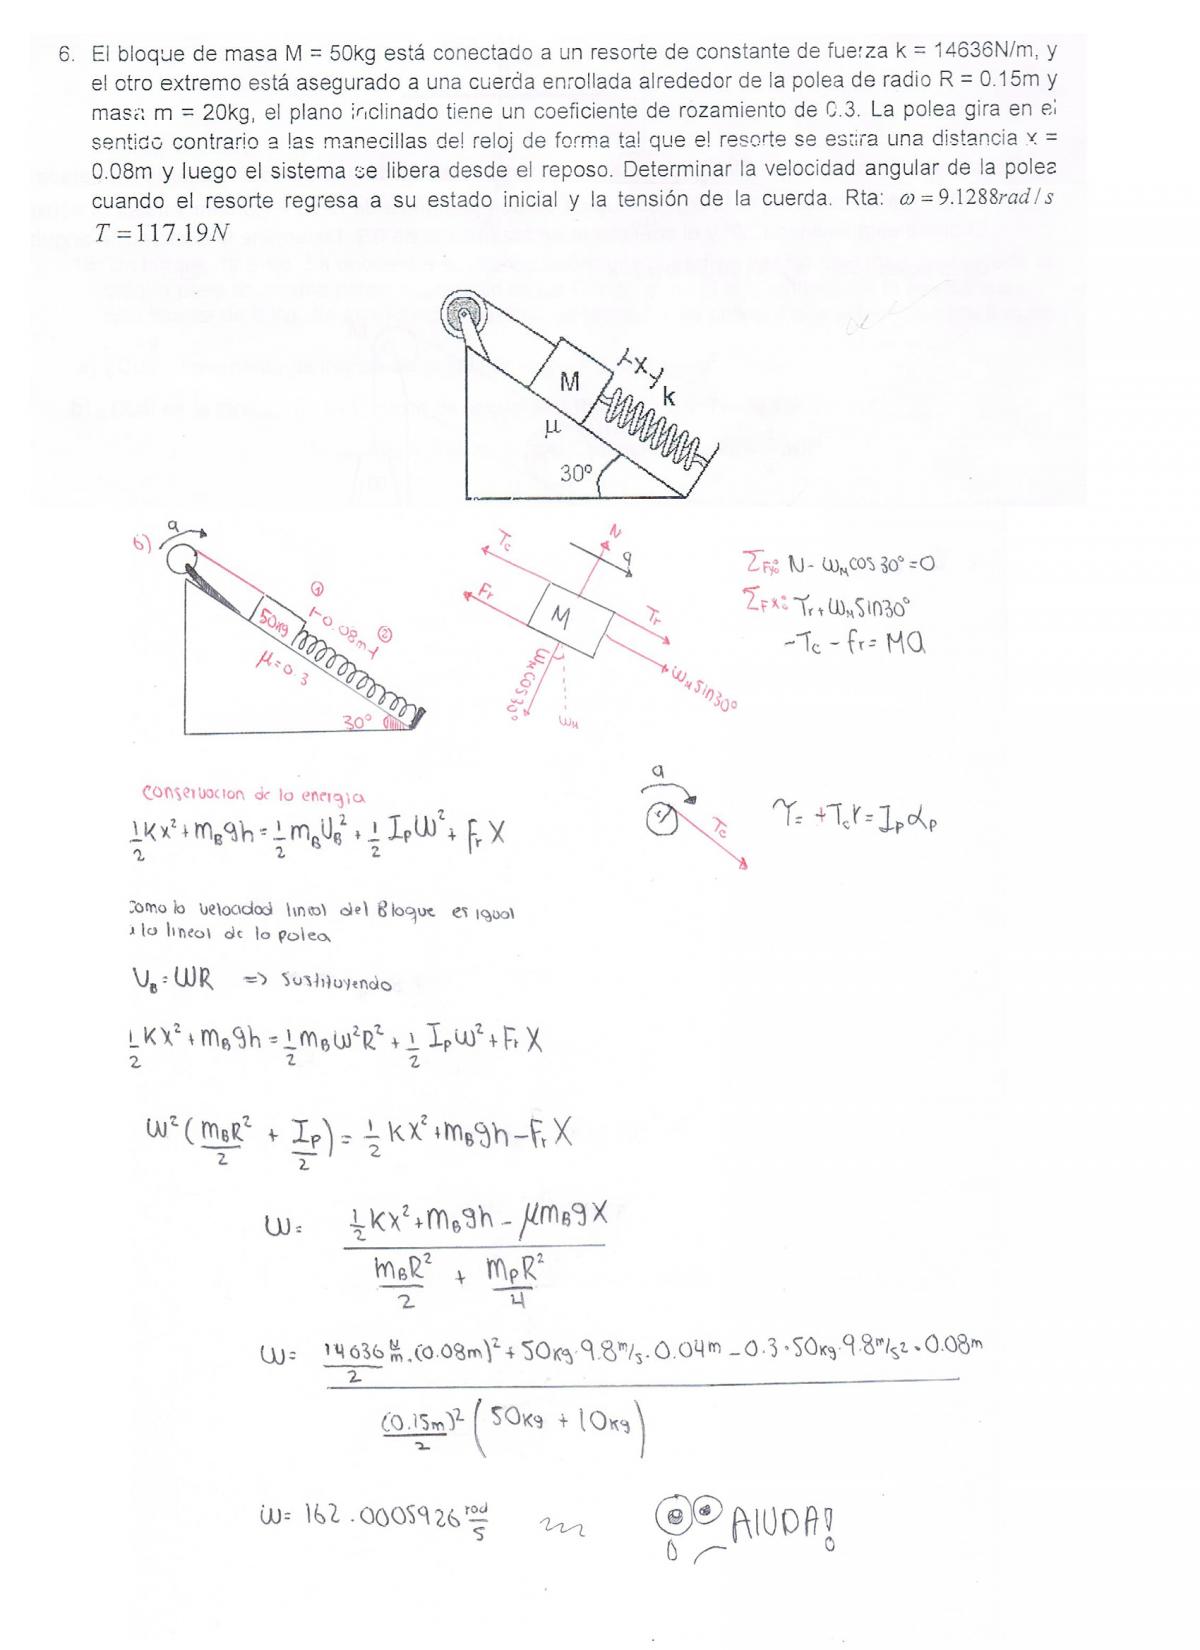 6. El bloque de masa M = 50kg está conectado a un resorte de constante de fuerza k = 14636N/m, y
el otro extremo está asegurado a una cuerda enrollada alrededor de la polea de radio R = 0.15m y
masa m = 20kg, el plano inclinado tiene un coeficiente de rozamiento de 0.3. La polea gira en el
sentido contrario a las manecillas del reloj de forma tal que el resorte se estira una distancia x =
0.08m y luego el sistema se libera desde el reposo. Determinar la velocidad angular de la polea
cuando el resorte regresa a su estado inicial y la tensión de la cuerda. Rta: ω = 9.1288rad / s
T = 117.19N
x
M
k
μ
30º
6)
a
①
0.08m
②
50kg
μ=0.3
30º
Tc
N
a
Fr
M
Tr
WMcos30º
WM
WMSin30º
ΣFy: N - WMcos30º = 0
ΣFx: Tr + WMSin30º
- Tc - fr = Ma
conservacion de la energia
1/2 Kx² + mBgh = 1/2 mBVB² + 1/2 IPW² + Fr X
a
r
Tc
τ = +Tcr = IPαP
Como la velocidad lineal del Bloque es igual
a la lineal de la polea
VB = WR => Sustituyendo
1/2 Kx² + mBgh = 1/2 mBW²R² + 1/2 IPW² + Fr X
W² (mBR²/2 + IP/2) = 1/2 Kx² + mBgh - Fr X
W = 1/2 Kx² + mBgh - μmBgX
mBR²/2 + mPR²/4
W = 14636 N/m/2 . (0.08m)² + 50kg . 9.8m/s . 0.04m - 0.3 . 50kg . 9.8m/s² . 0.08m
(0.15m)²/2 (50kg + 10kg)
W = 162.0005926 rad/s
AIUDA!